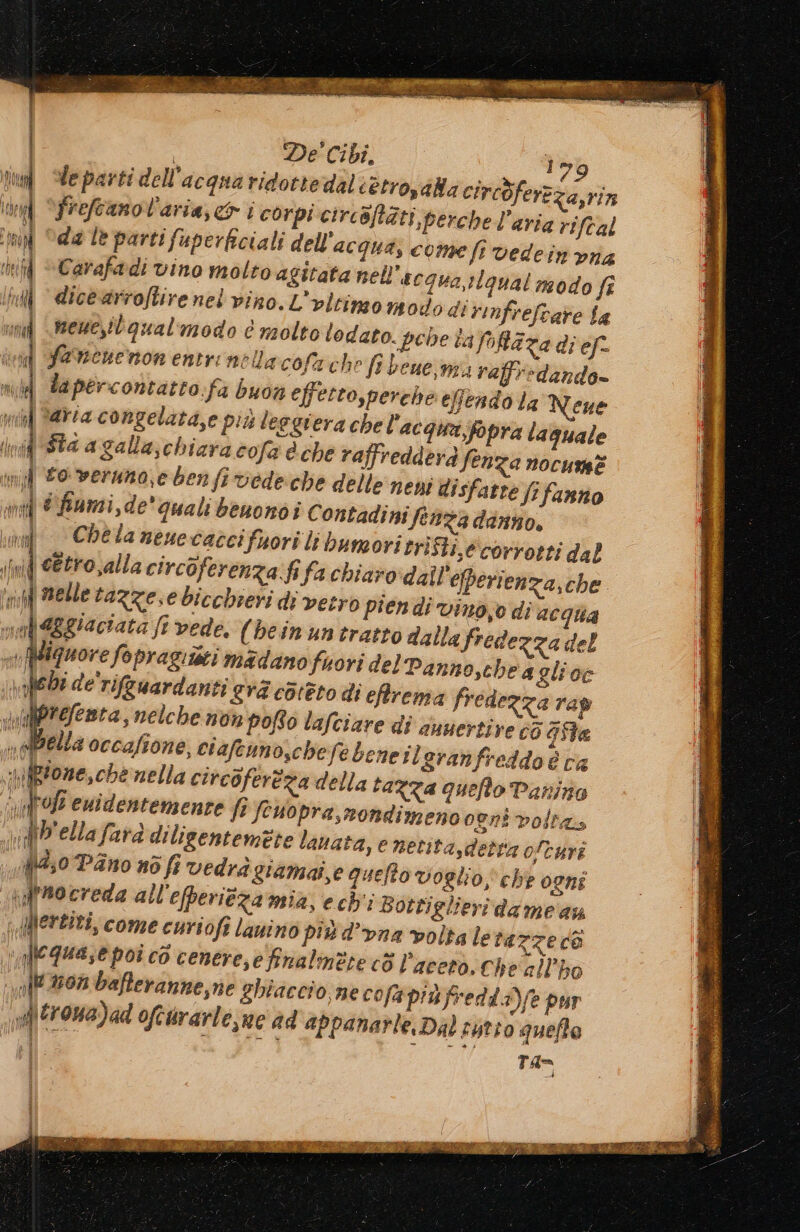 De' Cibi. 179
le parti dell'acqua ridotte dal cẽtro, alla circõferẽza, rin
frescano l'aria, & i corpi circõstãti, perche l'aria riscal
da le parti superficiali dell'acqua, come si vede in vna
Carafa di vino molto agitata nell'acqua, ilqual modo si
dice arrostire nel vino. L'vltimo modo di rinfrescare la
neue, il qual modo è molto lodato. pche la fostãza di es-
sa neue non entri nella cosa che si beue, ma raffredando-
la per contatto fa buon effetto, perche essendo la Neue
aria congelata, e più leggiera che l'acqua, sopra laquale
sta a galla, chiara cosa è che raffredderà senza nocumẽ
to veruno, e ben si vede che delle neui disfatte si fanno
é fiumi, de' quali beuono i Contadini senza danno.
Che la neue cacci fuori li humori tristi, e corrotti dal
cẽtro, alla circõferenza si fa chiaro dall'esperienza, che
nelle tazze, e bicchieri di vetro pien di vino, o di acqua
aggiacciata si vede. Che in un tratto dalla fredezza del
liquore sopragiũti mãdano fuori del Panno, che a gli oc
chi de' risguardanti grã cõtẽto di estrema fredezza rap
presenta, nelche non posso lasciare di auuertire cõ q̃sta
bella occasione, ciascuno, che se bene il gran freddo è ca
gione, che nella circõferẽza della tazza questo Panino
cosi euidentemente si scuopra, nondimeno ogni volta,
ch'ella sarà diligentemẽte lauata, e netita, detta oscuri
tà, o Pãno nõ si vedrà giamai, e questo voglio, che ogni
vno creda all'esperiẽza mia, e ch'i Bottiglieri da me au
uertiti, come curiosi lauino più d'vna volta le tazze cõ
acqua, e poi cõ cenere, e finalmẽte cõ l'aceto. Che all'ho
ra non basteranne, ne ghiaccio, ne cosa più fredda) se pur
si troua) ad oscurarle, ne ad appanarle. Dal tutto questo
Ta-